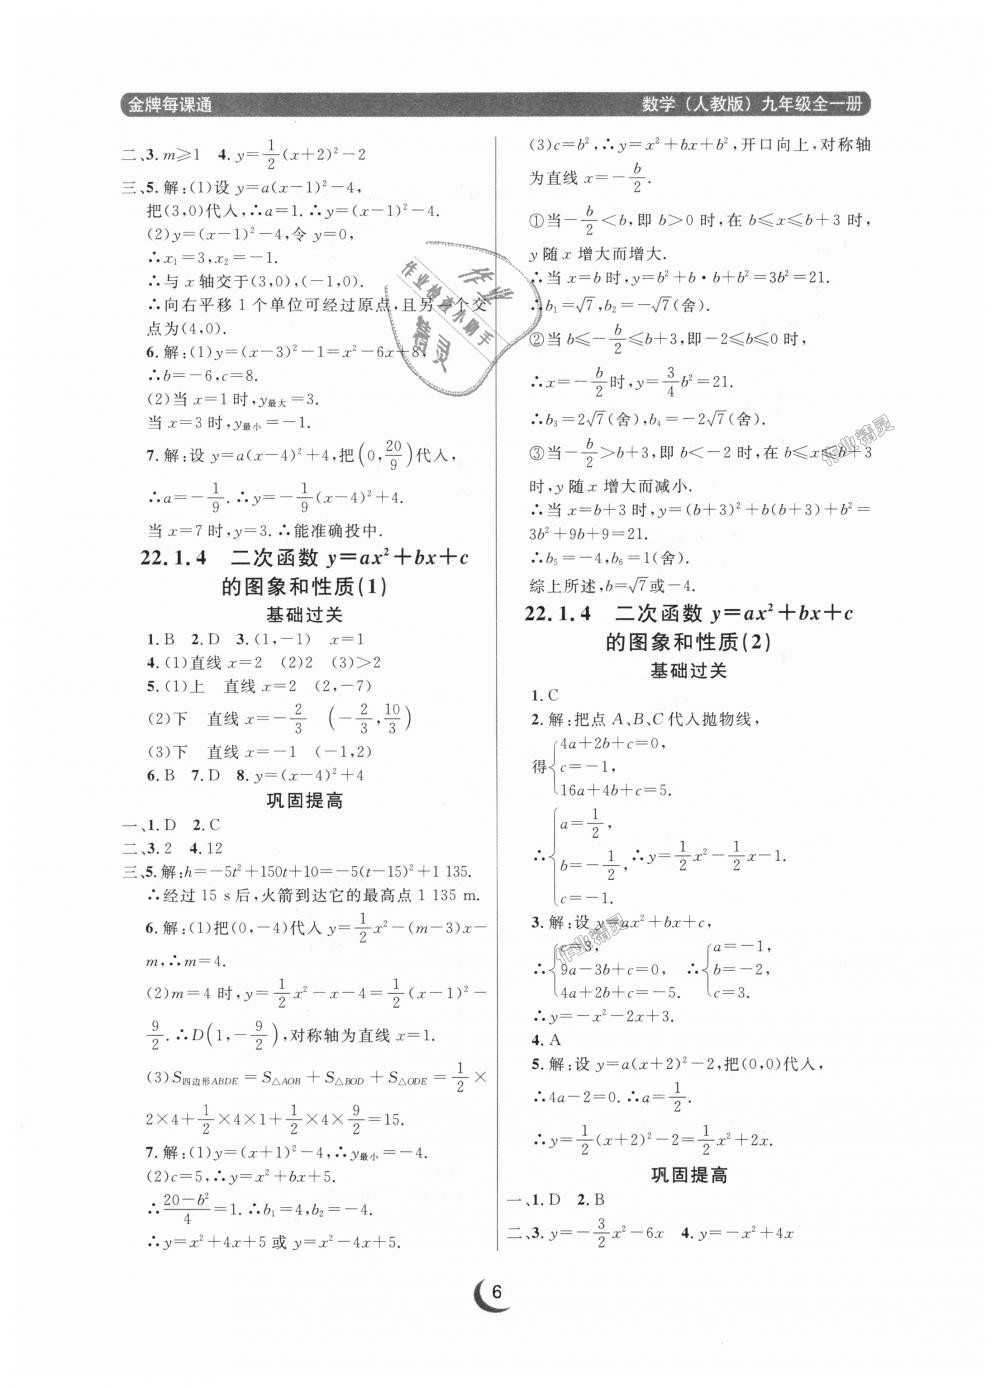 金牌每课通
数学（人教版）九年级全一册
二、3. m≥1　4. y=1/2(x+2)²-2
三、5. 解:(1)设 y=a(x-1)²-4,
把(3,0)代入,∴a=1. ∴y=(x-1)²-4.
(2)y=(x-1)²-4,令 y=0,
∴x₁=3,x₂=-1.
∴与 x 轴交于(3,0),(-1,0).
∴向右平移 1 个单位可经过原点,且另一个交
点为(4,0).
6. 解:(1)y=(x-3)²-1=x²-6x+8,
∴b=-6,c=8.
(2)当 x=1 时,y最大=3.
当 x=3 时,y最小=-1.
7. 解:设 y=a(x-4)²+4,把(0,20/9)代入,
∴a=-1/9. ∴y=-1/9(x-4)²+4.
当 x=7 时,y=3. ∴能准确投中.
22.1.4　二次函数 y=ax²+bx+c
的图象和性质(1)
基础过关
1. B　2. D　3. (1,-1)　x=1
4. (1)直线 x=2　(2)2　(3)>2
5. (1)上　直线 x=2　(2,-7)
(2)下　直线 x=-2/3　(-2/3,10/3)
(3)下　直线 x=-1　(-1,2)
6. B　7. D　8. y=(x-4)²+4
巩固提高
一、1. D　2. C
二、3. 2　4. 12
三、5. 解:h=-5t²+150t+10=-5(t-15)²+1 135.
∴经过 15 s 后,火箭到达它的最高点 1 135 m.
6. 解:(1)把(0,-4)代入 y=1/2x²-(m-3)x-
m,∴m=4.
(2)m=4 时,y=1/2x²-x-4=1/2(x-1)²-
9/2. ∴D(1,-9/2),对称轴为直线 x=1.
(3)S四边形ABDE=S△AOB+S△BOD+S△ODE=1/2×
2×4+1/2×4×1+1/2×4×9/2=15.
7. 解:(1)y=(x+1)²-4,∴y最小=-4.
(2)c=5,∴y=x²+bx+5.
∴(20-b²)/4=1. ∴b₁=4,b₂=-4.
∴y=x²+4x+5 或 y=x²-4x+5.
(3)c=b²,∴y=x²+bx+b²,开口向上,对称轴
为直线 x=-b/2.
①当-b/2<b,即 b>0 时,在 b≤x≤b+3 时,
y 随 x 增大而增大.
∴当 x=b 时,y=b²+b·b+b²=3b²=21.
∴b₁=√7,b₂=-√7(舍).
②当 b≤-b/2≤b+3,即-2≤b≤0 时,
∴x=-b/2时,y=3/4b²=21.
∴b₃=2√7(舍),b₄=-2√7(舍).
③当-b/2>b+3,即 b<-2 时,在 b≤x≤b+3
时,y 随 x 增大而减小.
∴当 x=b+3 时,y=(b+3)²+b(b+3)+b²=
3b²+9b+9=21.
∴b₅=-4,b₆=1(舍).
综上所述,b=√7或-4.
22.1.4　二次函数 y=ax²+bx+c
的图象和性质(2)
基础过关
1. C
2. 解:把点 A、B、C 代入抛物线,
4a+2b+c=0,
得{c=-1,
16a+4b+c=5.
a=1/2,
∴{b=-1/2, ∴y=1/2x²-1/2x-1.
c=-1.
3. 解:设 y=ax²+bx+c,
c=3,　a=-1,
∴{9a-3b+c=0,　∴{b=-2,
4a+2b+c=-5.　c=3.
∴y=-x²-2x+3.
4. A
5. 解:设 y=a(x+2)²-2,把(0,0)代入,
∴4a-2=0. ∴a=1/2.
∴y=1/2(x+2)²-2=1/2x²+2x.
巩固提高
一、1. D　2. B
二、3. y=-3/2x²-6x　4. y=-x²+4x
6
作业
作业检查小助手
精灵
作业精灵
作业精灵